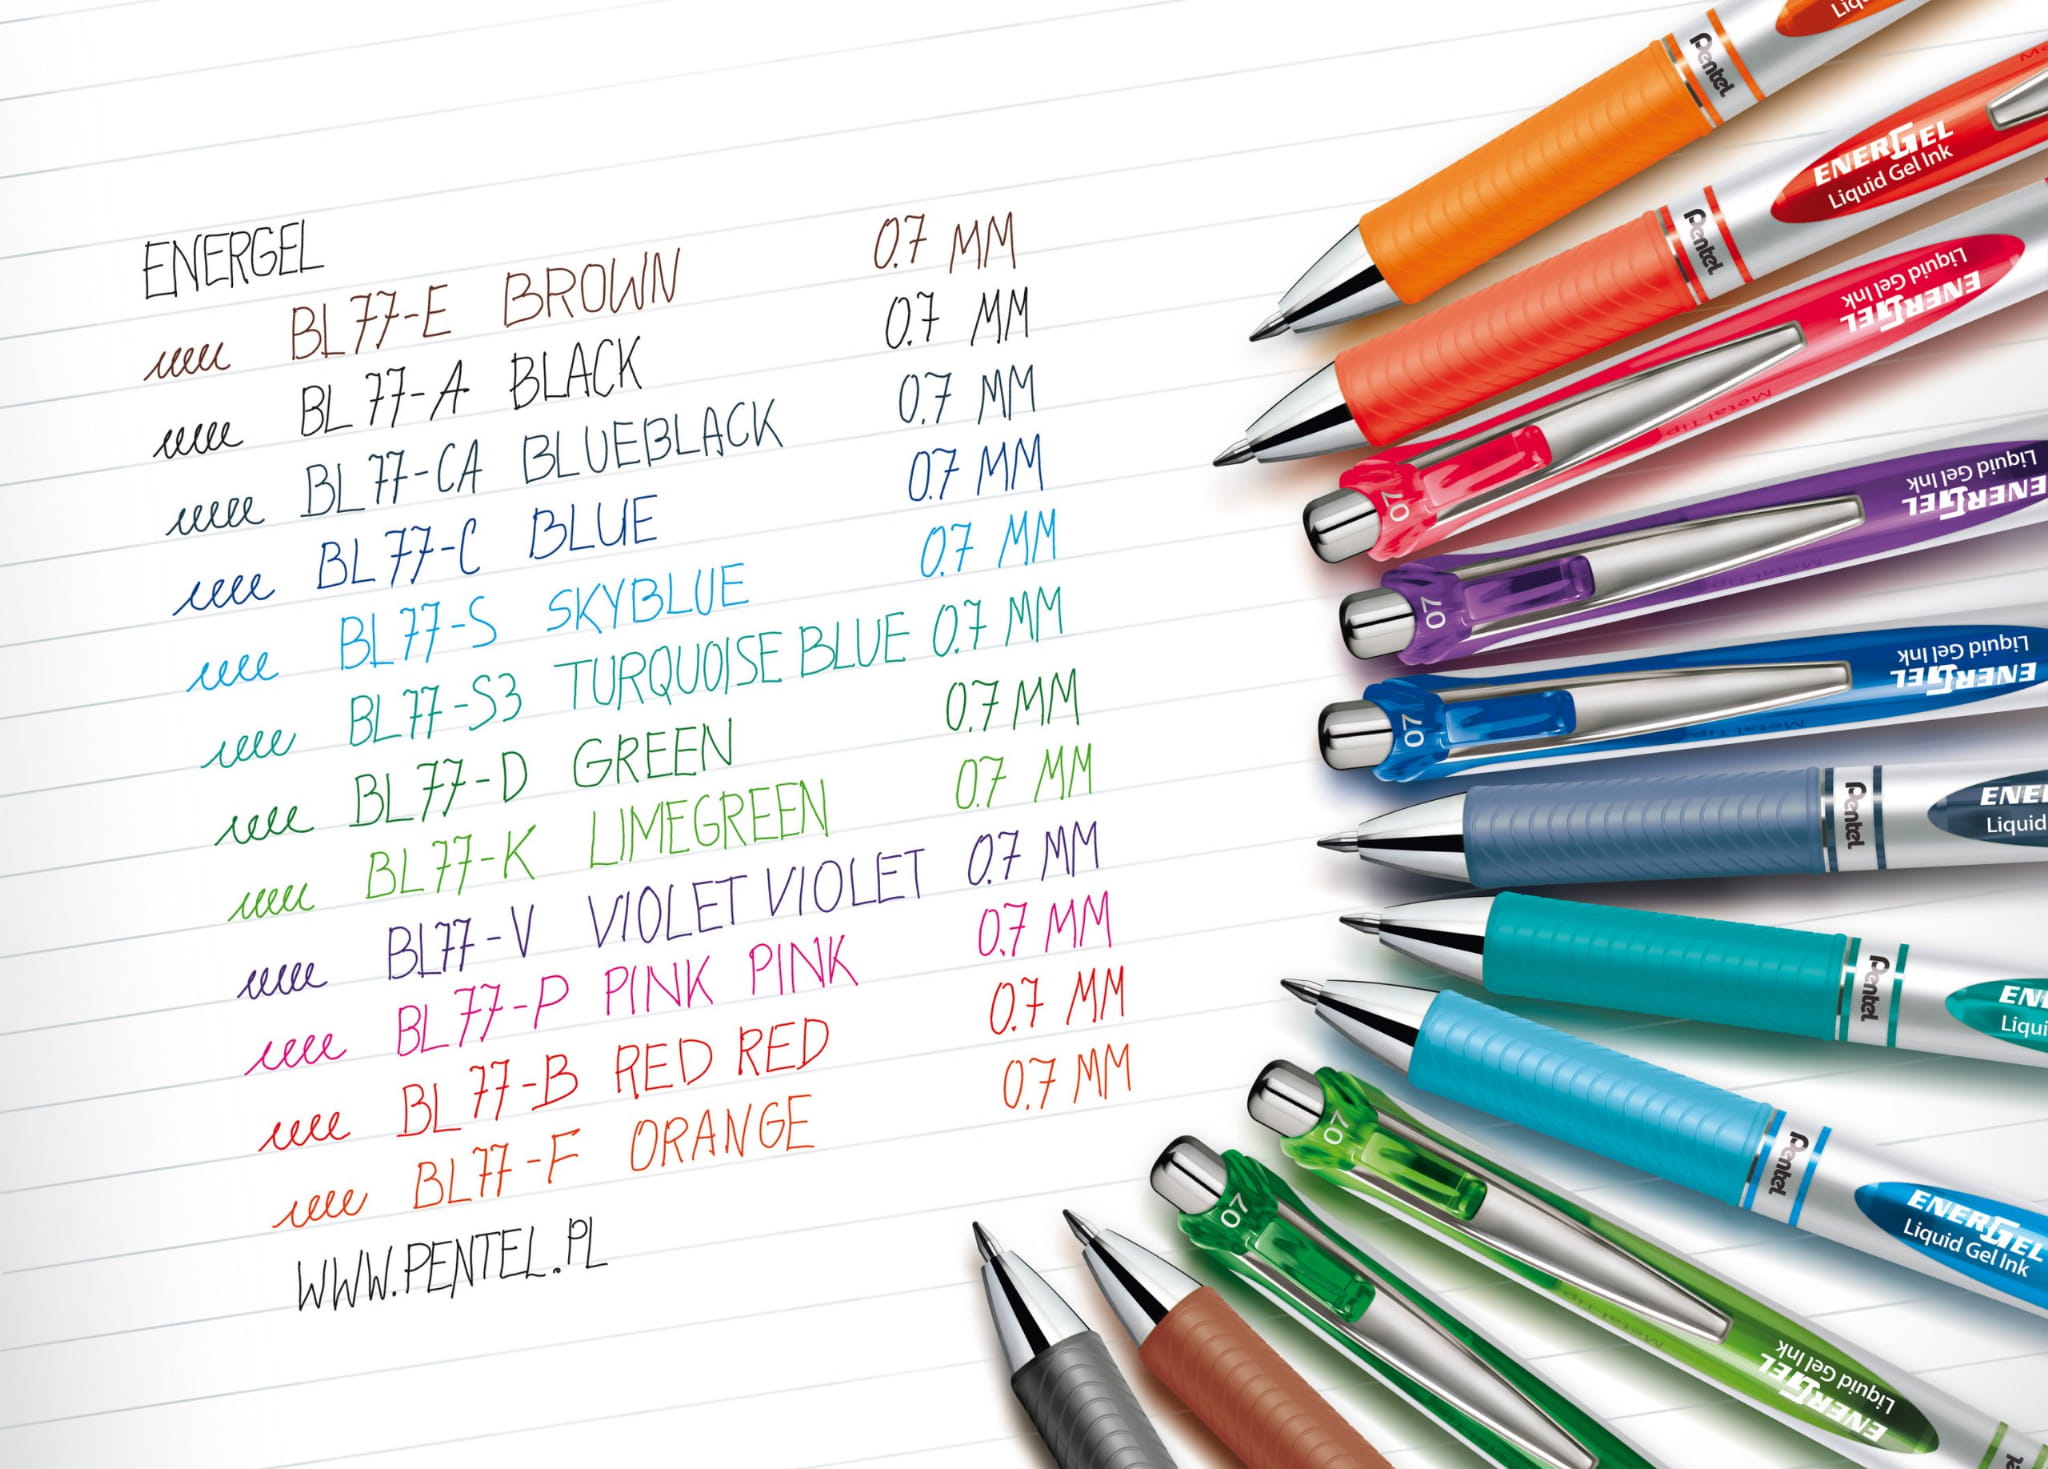 ENERGEL
BL77-E BROWN 0.7 MM
BL77-A BLACK 0.7 MM
BL77-CA BLUEBLACK 0.7 MM
BL77-C BLUE 0.7 MM
BL77-S SKYBLUE 0.7 MM
BL77-S3 TURQUOISE BLUE 0.7 MM
BL77-D GREEN 0.7 MM
BL77-K LIMEGREEN 0.7 MM
BL77-V VIOLET VIOLET 0.7 MM
BL77-P PINK PINK 0.7 MM
BL77-B RED RED 0.7 MM
BL77-F ORANGE 0.7 MM
WWW.PENTEL.PL
Pentel
Liq
Pentel
ENERGEL
Liquid Gel Ink
ENERGEL
Liquid Gel Ink
Metal Tip
07
ENERGEL
Liquid Gel Ink
Metal Tip
07
ENERGEL
Liquid Gel Ink
Metal Tip
07
Pentel
ENE
Liquid
Pentel
EN
Liqui
Pentel
ENERGEL
Liquid Gel Ink
07
Metal Tip
ENERGEL
Liquid Gel Ink
07